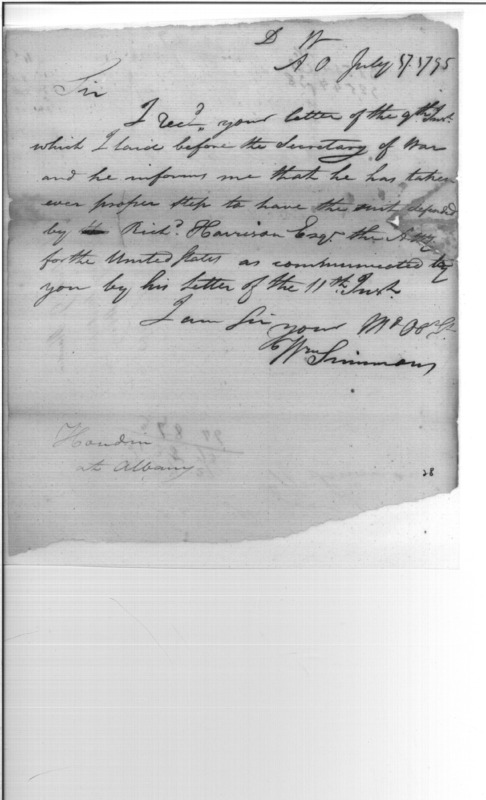 D W
A O July 17. 1795
Sir
I recd. your letter of the 9th Inst.
which I laid before the Secretary of War
and he informs me that he has taken
ever proper step to have the suit defended
by Richd. Harrison Esqr. the Atty
for the United States as communicated to
you by his letter of the 11th. Inst.
I am Sir
your Mt Obt St.
Wm Simmons
Houdin
at Albany
28